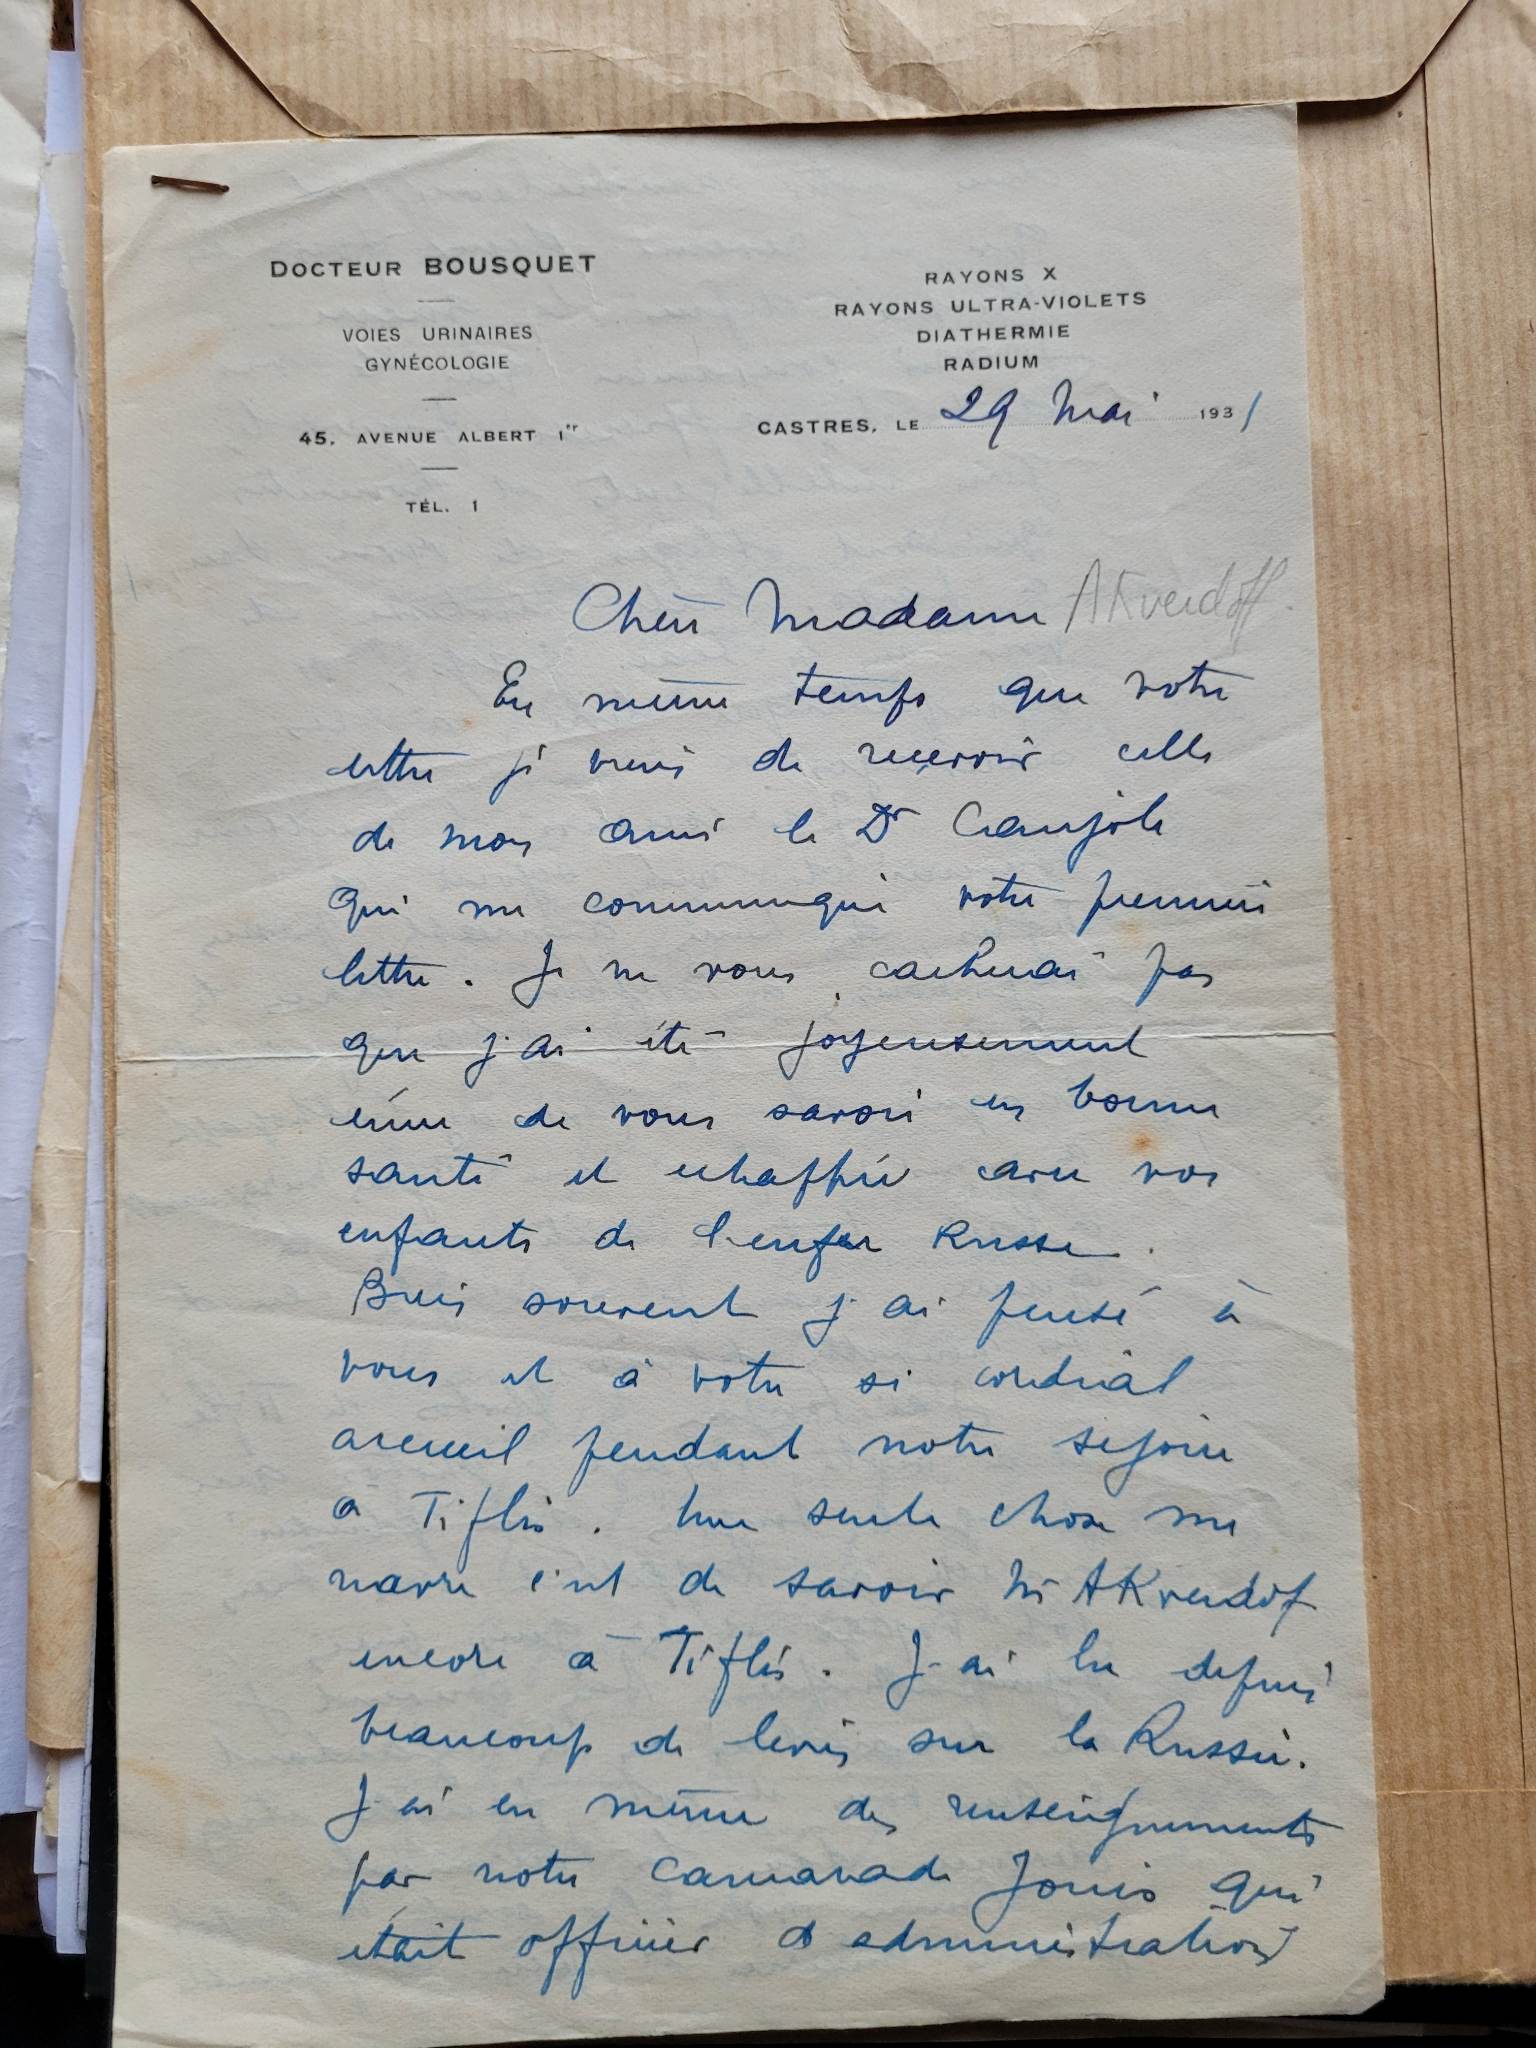 DOCTEUR BOUSQUET
VOIES URINAIRES
GYNÉCOLOGIE
45, AVENUE ALBERT 1er
TÉL. 1
RAYONS X
RAYONS ULTRA-VIOLETS
DIATHERMIE
RADIUM
CASTRES, LE 29 Mai 1931
Chère Madame AKverdoff.
En même temps que votre
lettre je viens de recevoir celle
de mon ami le Dr Caujole
qui me communique votre première
lettre. Je ne vous cacherai pas
que j'ai été joyeusement
ému de vous savoir en bonne
santé et echappée avec vos
enfants de l'enfer Russe.
Bien souvent j'ai pensé à
vous et à votre si cordial
accueil pendant notre sejour
à Tiflis. Une seule chose me
navre c'est de savoir Mr AKverdof
encore à Tiflis. J'ai lu depuis
beaucoup de livres sur la Russie.
J'ai eu même des renseignements
par notre camarade qui
était officier d'administration